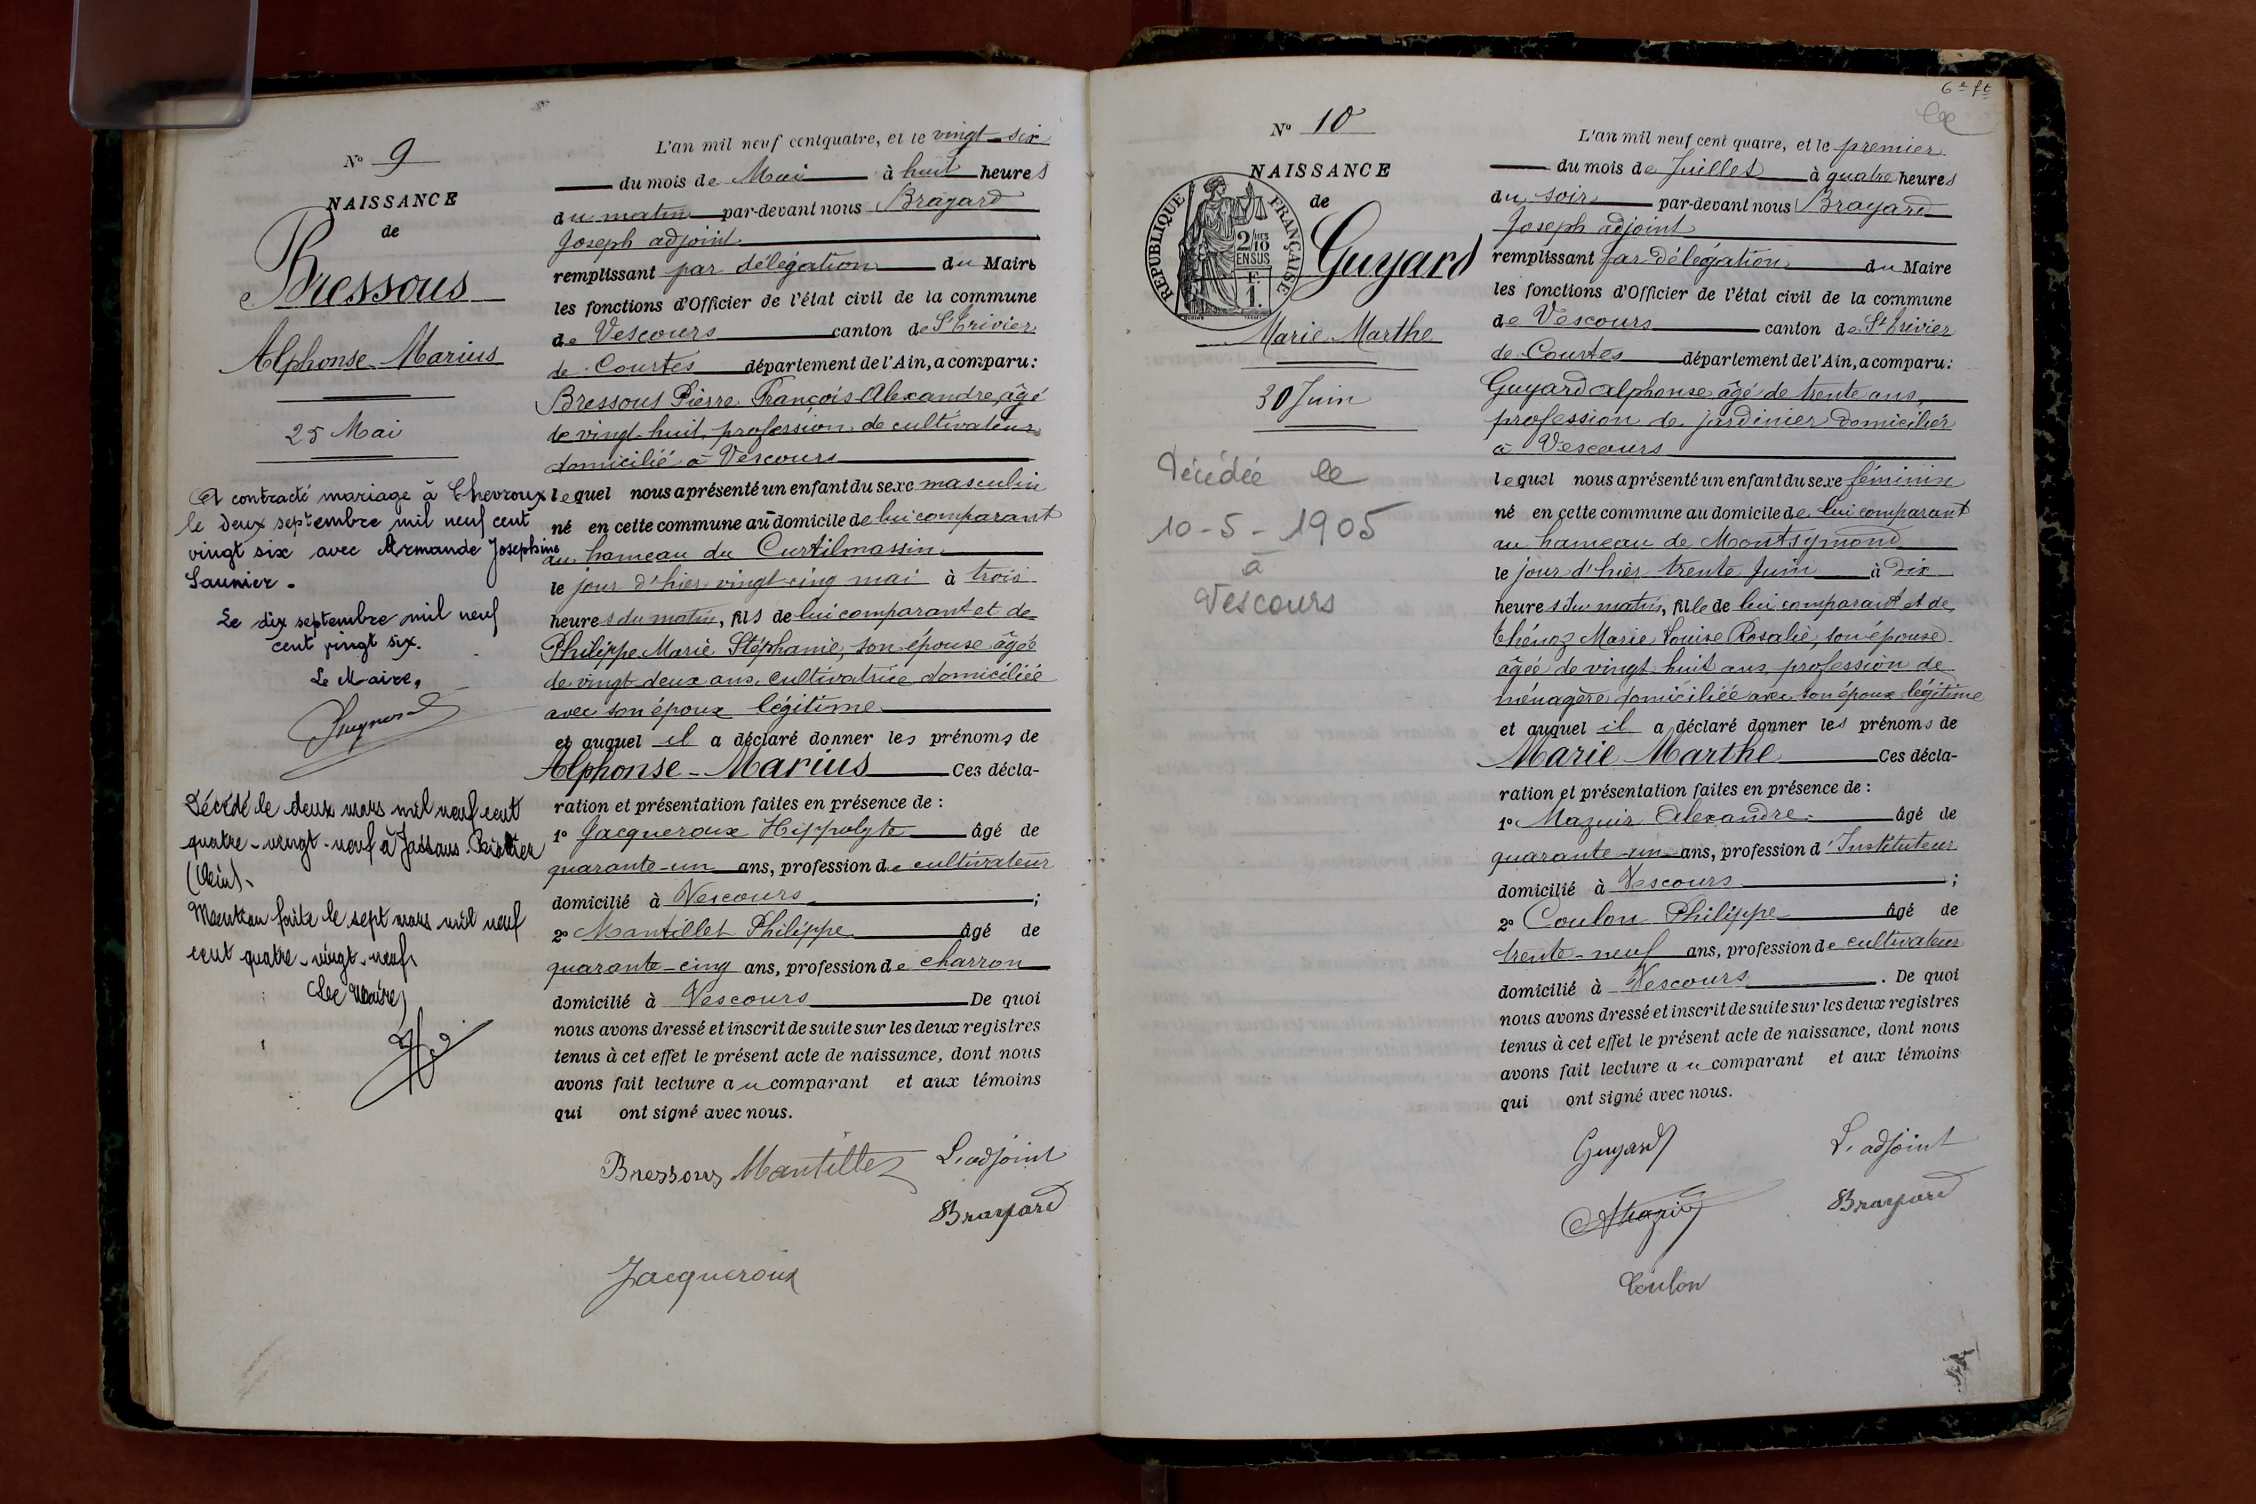 N° 9
NAISSANCE
de
Bressous
Alphonse-Marius
25 Mai
A contracté mariage à Chevroux
le deux septembre mil neuf cent
vingt six avec Armande Josephine
Saunier.
Le dix septembre mil neuf
cent vingt six.
Le Maire,
Décédé le deux mars mil neuf cent
quatre-vingt-neuf à Jassans-Riottier
(Ain).
Mention faite le sept mars mil neuf
cent quatre-vingt-neuf.
Le Maire,
L'an mil neuf cent quatre, et le vingt-six
du mois de Mai à huit heures
du matin par-devant nous Brayard
Joseph adjoint
remplissant par délégation du Maire
les fonctions d'Officier de l'état civil de la commune
de Vescours canton de St Trivier
de Courtes département de l'Ain, a comparu:
Bressous Pierre François Alexandre, âgé
de vingt-huit, profession de cultivateur
domicilié à Vescours
lequel nous a présenté un enfant du sexe masculin
né en cette commune au domicile de lui comparant
au hameau du Curtilmassin
le jour d'hier vingt-cinq mai à trois
heures du matin, fils de lui comparant et de
Philippe Marie Stéphanie, son épouse âgée
de vingt-deux ans, cultivatrice domiciliée
avec son époux légitime
et auquel il a déclaré donner les prénoms de
Alphonse-Marius Ces décla-
ration et présentation faites en présence de :
1° Jacqueroux Hippolyte âgé de
quarante-un ans, profession de cultivateur
domicilié à Vescours ;
2° Mantillet Philippe âgé de
quarante-cinq ans, profession de charron
domicilié à Vescours De quoi
nous avons dressé et inscrit de suite sur les deux registres
tenus à cet effet le présent acte de naissance, dont nous
avons fait lecture au comparant et aux témoins
qui ont signé avec nous.
Bressous Mantillet L'adjoint
Brayard
Jacqueroux
6e ft
N° 10
NAISSANCE
de
RÉPUBLIQUE FRANÇAISE
2/10
EN SUS
F.
1.
Guyard
Marie Marthe
30 Juin
Décédée le
10-5-1905
à
Vescours
L'an mil neuf cent quatre, et le premier
du mois de Juillet à quatre heures
du soir par-devant nous Brayard
Joseph adjoint
remplissant par délégation du Maire
les fonctions d'Officier de l'état civil de la commune
de Vescours canton de St Trivier
de Courtes département de l'Ain, a comparu:
Guyard Alphonse âgé de trente ans,
profession de jardinier domicilié
à Vescours
lequel nous a présenté un enfant du sexe féminin
né en cette commune au domicile de lui comparant
au hameau de Montsymond
le jour d'hier trente Juin à dix
heures du matin, fille de lui comparant et de
Thénoz Marie Louise Rosalie, son épouse
âgée de vingt-huit ans, profession de
ménagère domiciliée avec son époux légitime
et auquel il a déclaré donner les prénoms de
Marie Marthe Ces décla-
ration et présentation faites en présence de :
1° Mazuir Alexandre âgé de
quarante-un ans, profession d'Instituteur
domicilié à Vescours ;
2° Coulon Philippe âgé de
trente-neuf ans, profession de cultivateur
domicilié à Vescours. De quoi
nous avons dressé et inscrit de suite sur les deux registres
tenus à cet effet le présent acte de naissance, dont nous
avons fait lecture au comparant et aux témoins
qui ont signé avec nous.
Guyard L'adjoint
Mazuir Brayard
Coulon